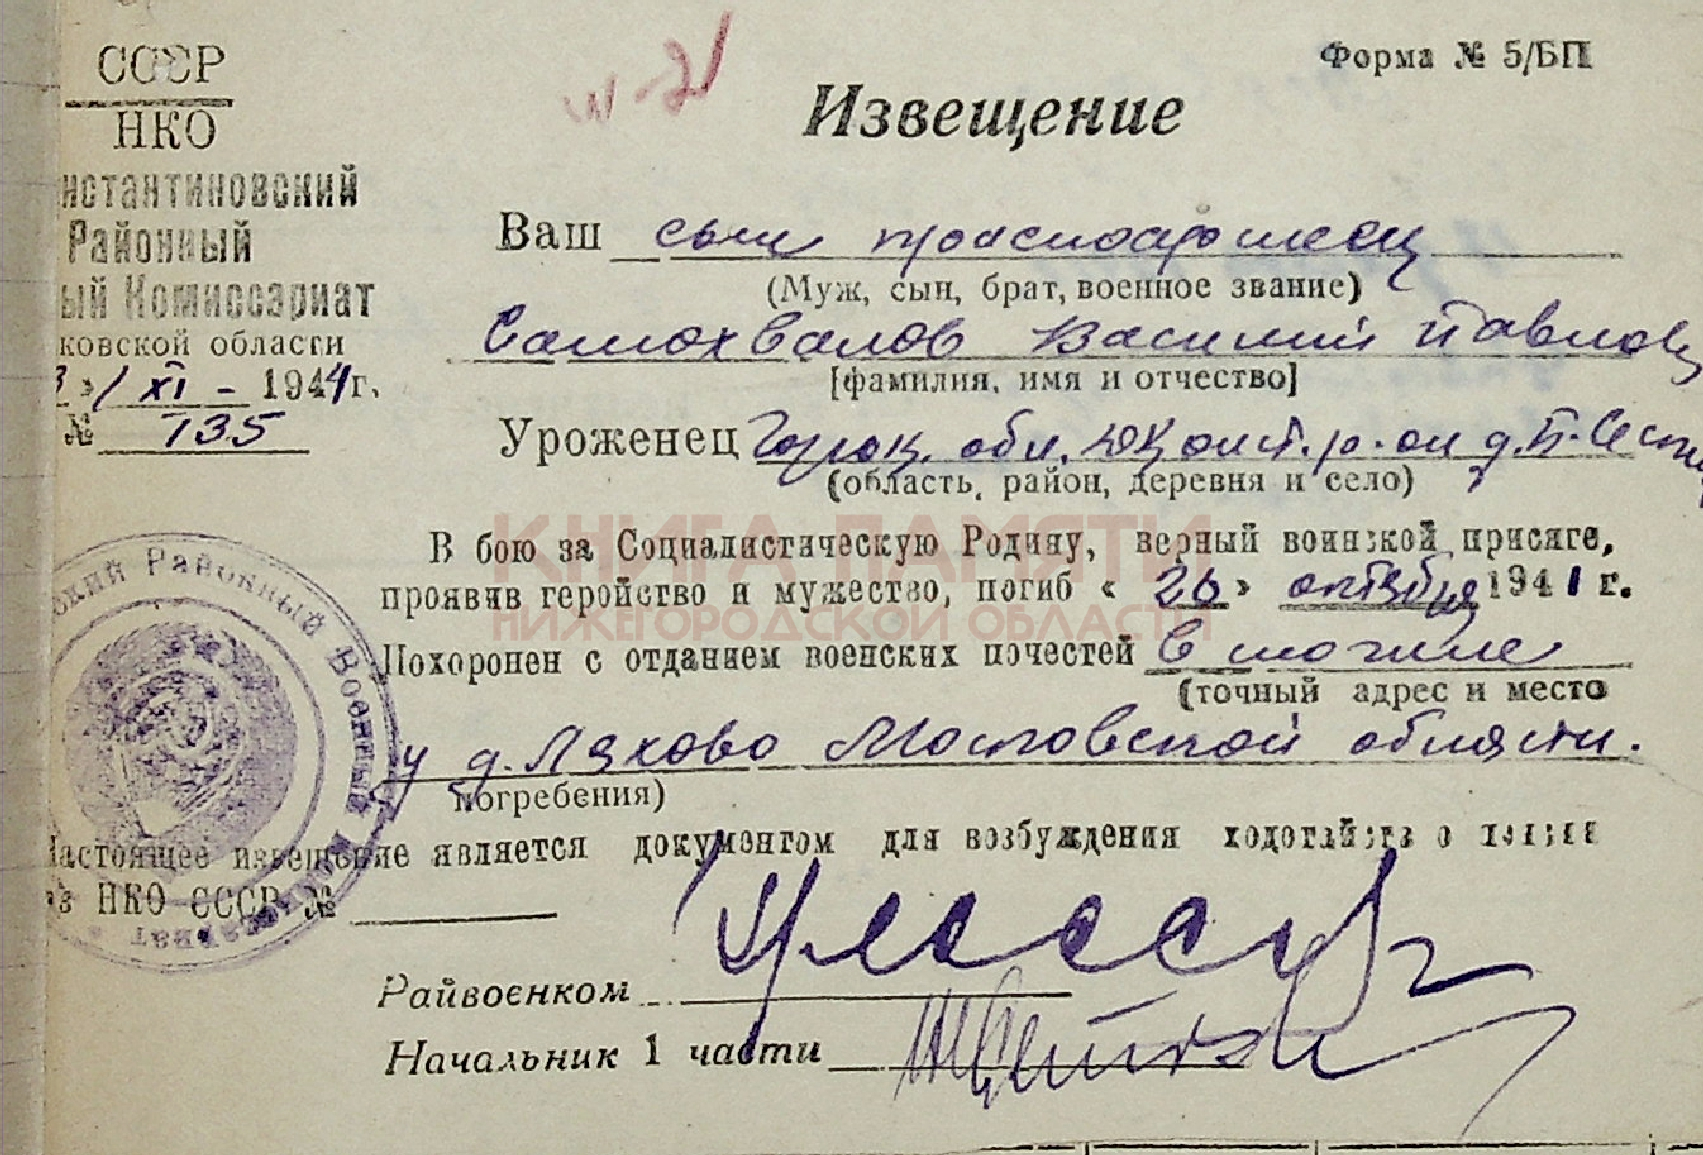 СССР
НКО
нстантиновский
Районный
ый Комиссариат
ковской области
3 » XI - 1944 г.
№ 735
Форма № 5/БП
Извещение
Ваш сын красноармеец
(Муж, сын, брат, военное звание)
Самохвалов Василий Павлов
[фамилия, имя и отчество]
Уроженец Горьк. обл. Д Конст. р-он д. Б-Сести
(область, район, деревня и село)
В бою за Социалистическую Родину, верный воинской присяге,
проявив геройство и мужество, погиб « 26 » октября 1941 г.
КНИГА ПАМЯТИ
НИЖЕГОРОДСКОЙ ОБЛАСТИ
Похоронен с отданием военских почестей в могиле
(точный адрес и место
у д. Ляхово Московской области.
погребения)
Настоящее извещение является документом для возбуждения ходатайства о пенсии
аз НКО СССР №
Райвоенком
Начальник 1 части
ский Районный Военный Комиссариат